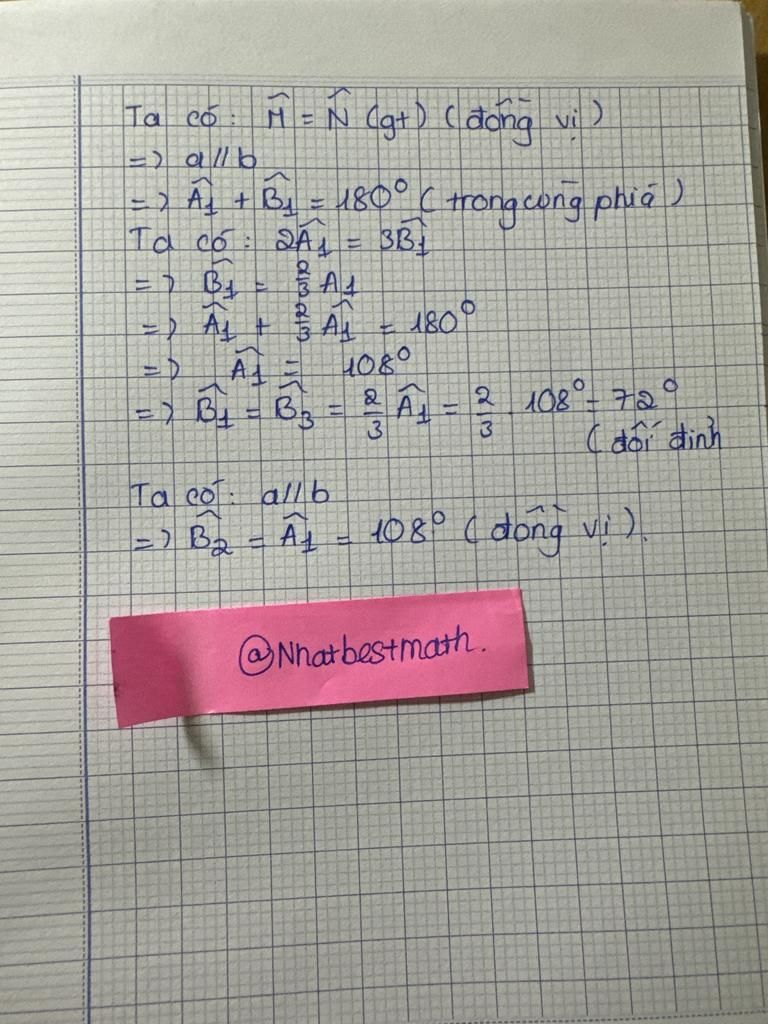 Ta có: M̂ = N̂ (gt) (đồng vị)
=> a//b
=> Â1 + B̂1 = 180° (trong cùng phía)
Ta có: 2Â1 = 3B̂1
=> B̂1 = 2/3 A1
=> Â1 + 2/3 Â1 = 180°
=> Â1 = 108°
=> B̂1 = B̂3 = 2/3 Â1 = 2/3 . 108° = 72°
(đối đỉnh
Ta có: a//b
=> B̂2 = Â1 = 108° (đồng vị).
@Nhatbestmath.